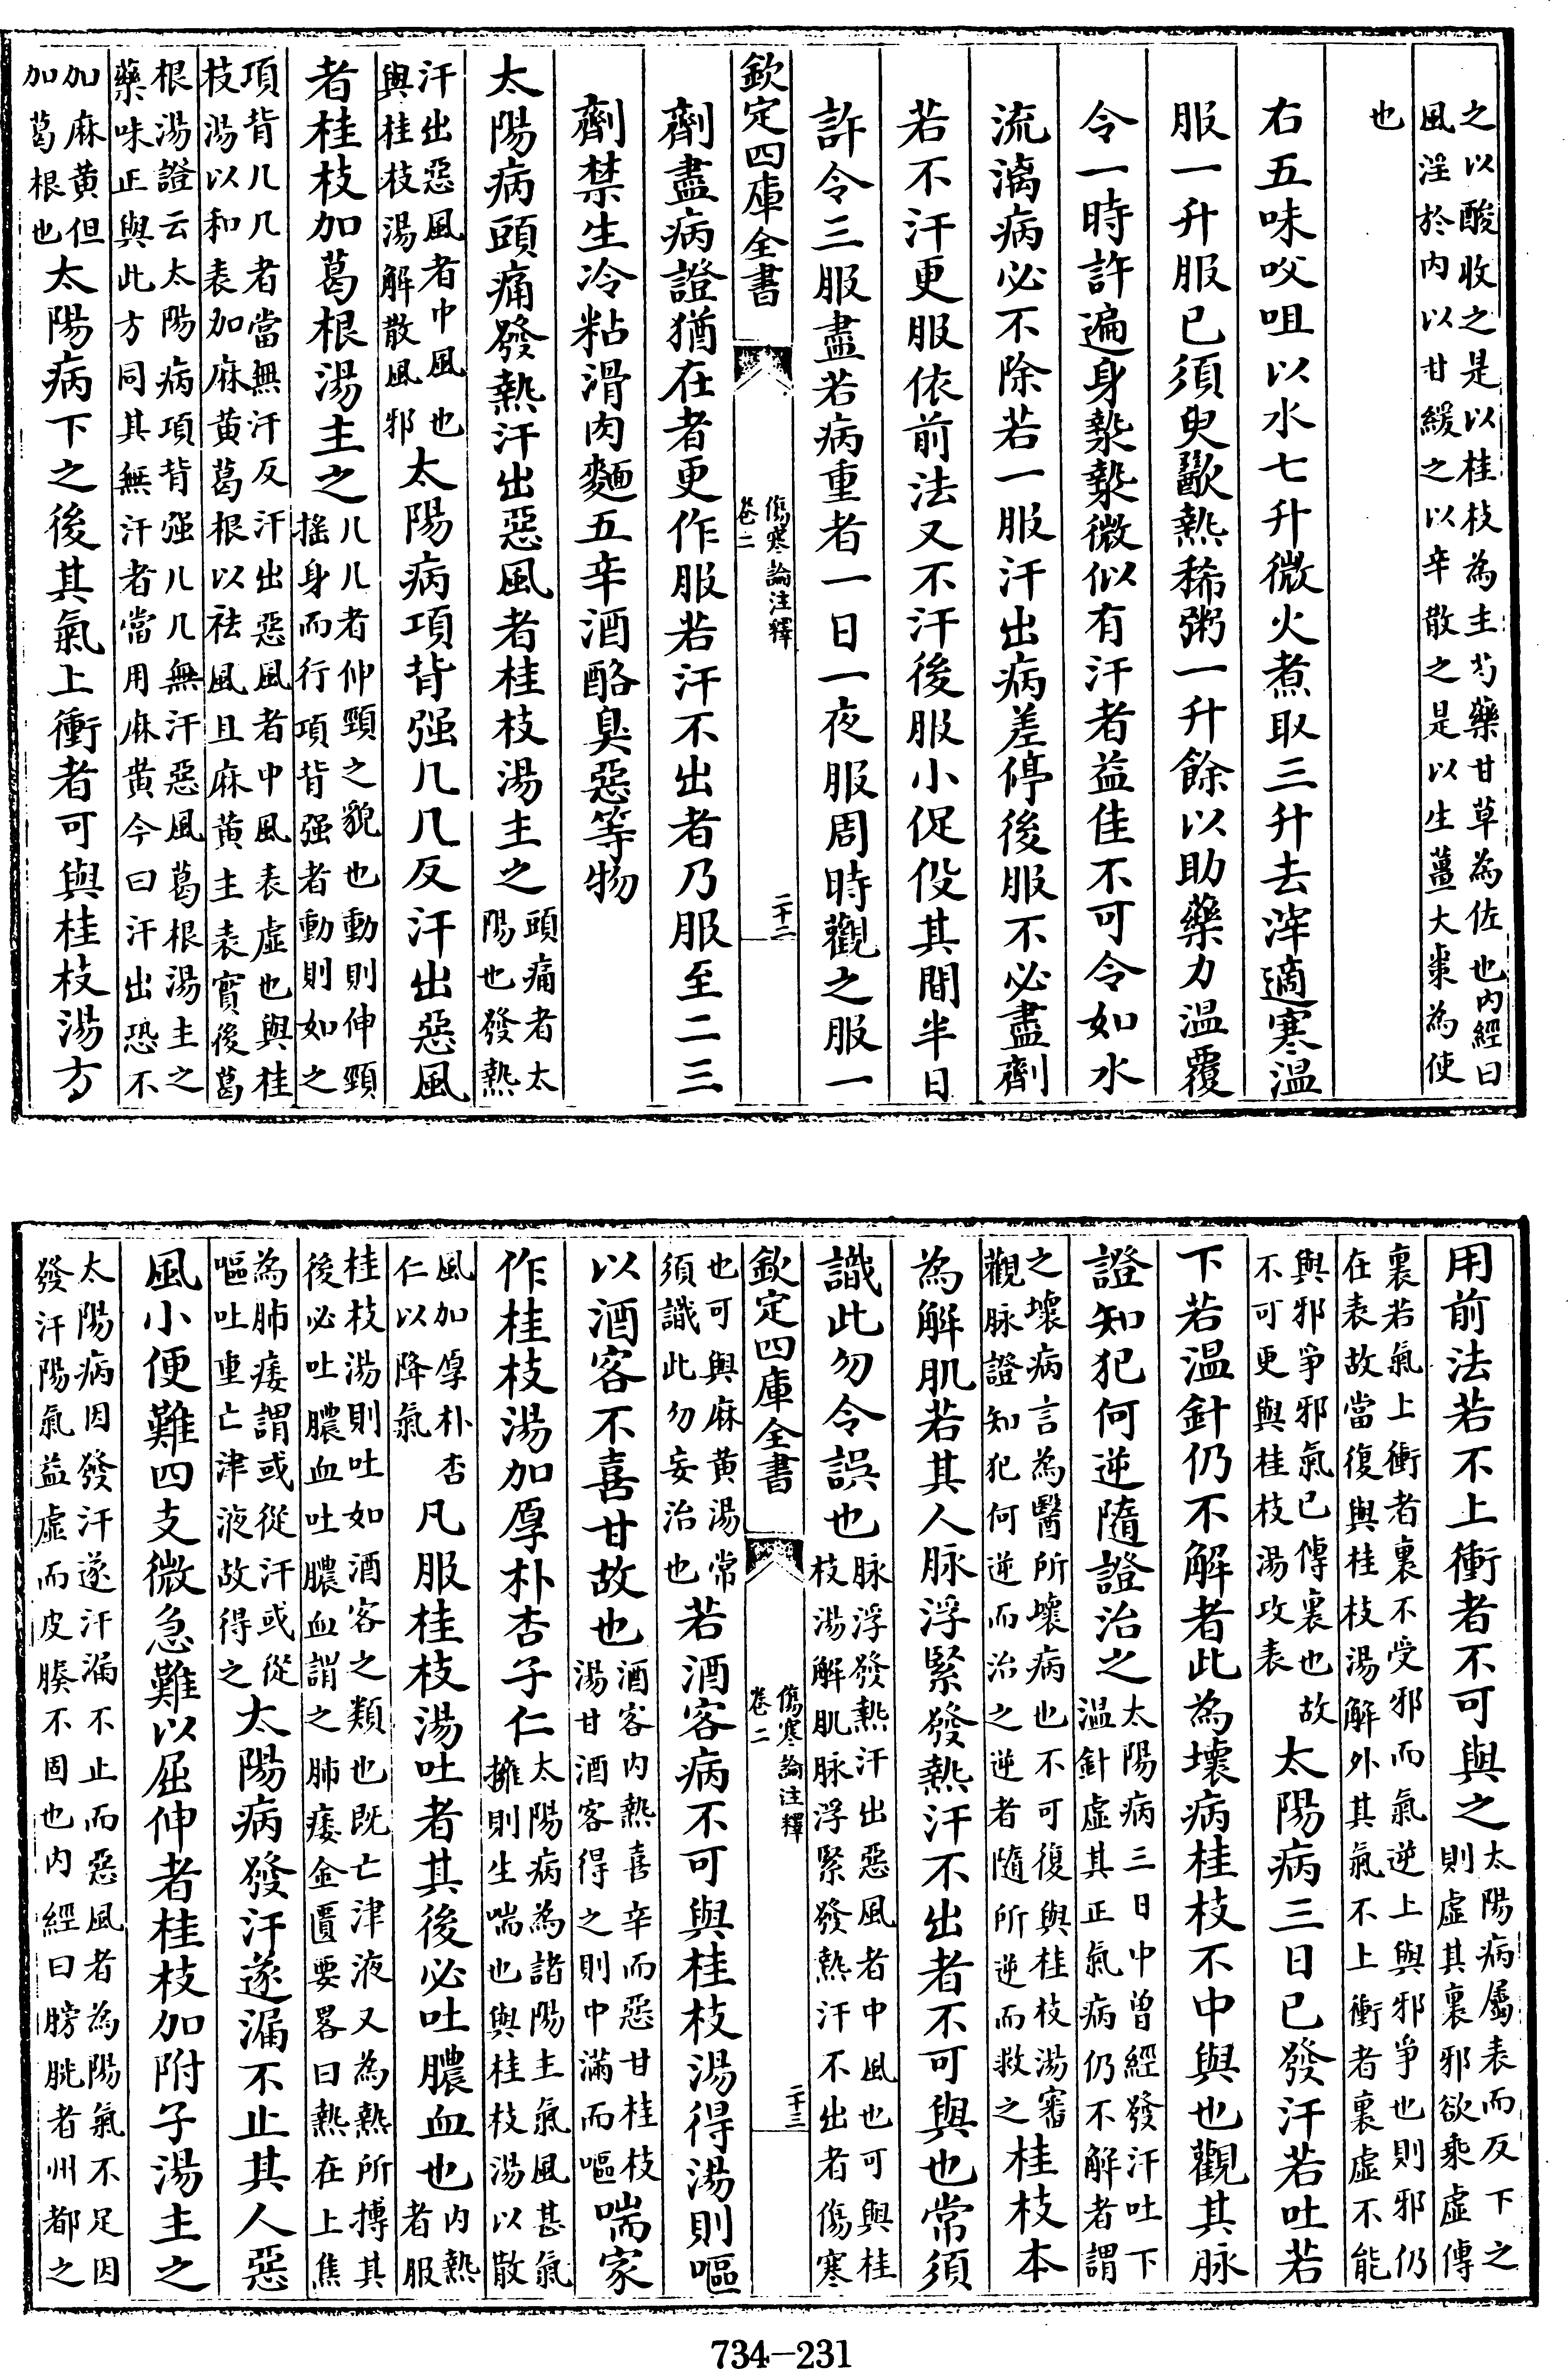 之以酸收之是以桂枝為主芍藥甘草為佐也内經曰
風淫於内以甘緩之以辛散之是以生薑大棗為使
也
右五味㕮咀以水七升微火煮取三升去滓適寒温
服一升服已須臾歠熱稀粥一升餘以助藥力温覆
令一時許遍身漐漐微似有汗者益佳不可令如水
流漓病必不除若一服汗出病差停後服不必盡劑
若不汗更服依前法又不汗後服小促役其間半日
許令三服盡若病重者一日一夜服周時觀之服一
欽定四庫全書 傷寒論注釋 卷二 二十二
劑盡病證猶在者更作服若汗不出者乃服至二三
劑禁生冷粘滑肉麵五辛酒酪臭惡等物
太陽病頭痛發熱汗出惡風者桂枝湯主之頭痛者太
陽也發熱
汗出惡風者中風也
與桂枝湯解散風邪太陽病項背强几几反汗出惡風
者桂枝加葛根湯主之几几者伸頸之貌也動則伸頸
摇身而行項背强者動則如之
項背几几者當無汗反汗出惡風者中風表虚也與桂
枝湯以和表加麻黄葛根以祛風且麻黄主表實後葛
根湯證云太陽病項背强几几無汗惡風葛根湯主之
藥味正與此方同其無汗者當用麻黄今曰汗出恐不
加麻黄但
加葛根也太陽病下之後其氣上衝者可與桂枝湯方
用前法若不上衝者不可與之太陽病屬表而反下之
則虚其裏邪欲乘虚傳
裏若氣上衝者裏不受邪而氣逆上與邪爭也則邪仍
在表故當復與桂枝湯解外其氣不上衝者裏虚不能
與邪爭邪氣已傳裏也故
不可更與桂枝湯攻表太陽病三日已發汗若吐若
下若温針仍不解者此為壊病桂枝不中與也觀其脉
證知犯何逆隨證治之太陽病三日中曾經發汗吐下
温針虚其正氣病仍不解者謂
之壊病言為醫所壊病也不可復與桂枝湯審
觀脉證知犯何逆而治之逆者隨所逆而救之桂枝本
為解肌若其人脉浮緊發熱汗不出者不可與也常須
識此勿令誤也脉浮發熱汗出惡風者中風也可與桂
枝湯解肌脉浮緊發熱汗不出者傷寒
欽定四庫全書 傷寒論注釋 卷二 二十三
也可與麻黄湯常
須識此勿妄治也若酒客病不可與桂枝湯得湯則嘔
以酒客不喜甘故也酒客内熱喜辛而惡甘桂枝
湯甘酒客得之則中滿而嘔喘家
作桂枝湯加厚朴杏子仁太陽病為諸陽主氣風甚氣
擁則生喘也與桂枝湯以散
風加厚朴杏
仁以降氣凡服桂枝湯吐者其後必吐膿血也内熱
者服
桂枝湯則吐如酒客之類也既亡津液又為熱所摶其
後必吐膿血吐膿血謂之肺痿金匱要畧曰熱在上焦
為肺痿謂或從汗或從
嘔吐重亡津液故得之太陽病發汗遂漏不止其人惡
風小便難四支微急難以屈伸者桂枝加附子湯主之
太陽病因發汗遂汗漏不止而惡風者為陽氣不足因
發汗陽氣益虚而皮腠不固也内經曰膀胱者州都之
734-231